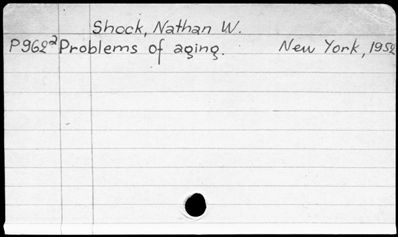 Shock, Nathan W.
P962² Problems of aging. New York, 1952